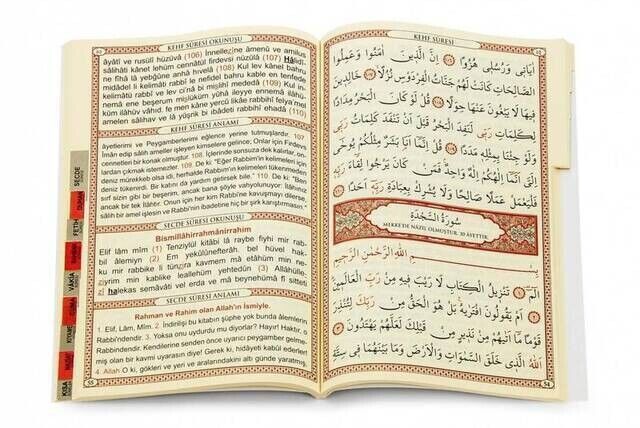 KEHF SÛRESİ OKUNUŞU
âyâtî ve rusulî hüzüvâ (106) İnnellezîne âmenû ve amilus
sâlihâti kânet lehüm cennâtül firdevsi nüzülâ (107) Hâlidî-
ne fîhâ lâ yebğûne anhâ hıvelâ (108) Kul lev kânel bahru
midâdel li kelimâti rabbî le nefidel bahru kable en tenfede
kelimâtü rabbî ve lev ci'nâ bi mislihî mededâ (109) Kul in-
nemâ ene beşerum mislüküm yûhâ ileyye ennemâ ilâhü-
küm ilâhüv vâhid, fe men kâne yercû likâe rabbihî felya'mel
amelen sâlihav ve lâ yüşrik bi ıbâdeti rabbihî ehadâ (110)
KEHF SÛRESİ ANLAMI
âyetlerimi ve Peygamberlerimi eğlence yerine tutmuşlardır. 107.
İman edip sâlih ameller işleyen kimselere gelince; Onlar için Firdevs
cennetleri bir konak olmuştur. 108. İçlerinde sonsuza dek kalırlar, on-
lardan çıkmak istemezler. 109. De ki: "Eğer Rabbim'in kelimeleri için
deniz mürekkeb olsa idi, herhalde Rabbim'in kelimeleri tükenmeden
deniz tükenirdi. Bir katını da yardım getirsek bile." 110. De ki: "Ben
sırf sizin gibi bir beşerim, ancak bana şöyle vahyolunuyor: İlâhınız
ancak bir tek İlâhtır. Onun için her kim Rabbi'ne kavuşmayı dilerse,
sâlih bir amel işlesin ve Rabbi'nin ibâdetine hiç bir şirk karıştırmasın."
SECDE SÛRESİ OKUNUŞU
Bismillâhirrahmânirrahîm
Elif lâm mîm (1) Tenzîylül kitâbi lâ raybe fîyhi mir rab-
bil âlemîyn (2) Em yekûlûnefterâh, bel hüvel hak-
ku mir rabbike li tünzira kavmem mâ etâhüm min ne-
zîyrim min kablike leallehüm yehtedûn (3) Allâhülle-
zî halekas semâvâti vel erda ve mâ beynehümâ fî sitteti
SECDE SÛRESİ ANLAMI
Rahman ve Rahim olan Allah'ın İsmiyle.
1. Elif, Lâm, Mîm. 2. İndirilişi bu kitabın şüphe yok bunda âlemlerin
Rabbi'ndendir. 3. Yoksa onu uydurdu mu diyorlar? Hayır! Haktır, o
Rabbindendir. Kendilerine senden önce uyarıcı peygamber gelme-
miş olan bir kavmi uyarasın diye! Gerek ki, hidâyeti kabul ederler!
4. Allah O ki, gökleri ve yeri ve aralarındakini altı günde yaratmış,
SECDE
DUHAN
FETİH
VÂKIA
KIYAMET
KISA
KEHF SÛRESİ
اٰيَاتٖي وَرُسُلٖي هُزُوًا ﴿١٠٦﴾ اِنَّ الَّذٖينَ اٰمَنُوا وَعَمِلُوا
الصَّالِحَاتِ كَانَتْ لَهُمْ جَنَّاتُ الْفِرْدَوْسِ نُزُلًا ﴿١٠٧﴾ خَالِدٖينَ
فٖيهَا لَا يَبْغُونَ عَنْهَا حِوَلًا ﴿١٠٨﴾ قُلْ لَوْ كَانَ الْبَحْرُ مِدَادًا
لِكَلِمَاتِ رَبّٖي لَنَفِدَ الْبَحْرُ قَبْلَ اَنْ تَنْفَدَ كَلِمَاتُ رَبّٖي
وَلَوْ جِئْنَا بِمِثْلِهٖ مَدَدًا ﴿١٠٩﴾ قُلْ اِنَّمَا اَنَا بَشَرٌ مِثْلُكُمْ يُوحٰٓى
اِلَيَّ اَنَّمَا اِلٰهُكُمْ اِلٰهٌ وَاحِدٌ فَمَنْ كَانَ يَرْجُوا لِقَاءَ رَبِّهٖ
فَلْيَعْمَلْ عَمَلًا صَالِحًا وَلَا يُشْرِكْ بِعِبَادَةِ رَبِّهٖٓ اَحَدًا ﴿١١٠﴾
سُورَةُ السَّجْدَةِ
MEKKE'DE NÂZİL OLMUŞTUR. 30 ÂYETTİR.
بِسْمِ اللّٰهِ الرَّحْمٰنِ الرَّحٖيمِ
الٓمٓ ﴿١﴾ تَنْزٖيلُ الْكِتَابِ لَا رَيْبَ فٖيهِ مِنْ رَبِّ الْعَالَمٖينَ
﴿٢﴾ اَمْ يَقُولُونَ افْتَرٰيهُ بَلْ هُوَ الْحَقُّ مِنْ رَبِّكَ لِتُنْذِرَ
قَوْمًا مَٓا اَتٰيهُمْ مِنْ نَذٖيرٍ مِنْ قَبْلِكَ لَعَلَّهُمْ يَهْتَدُونَ ﴿٣﴾
اَللّٰهُ الَّذٖي خَلَقَ السَّمٰوَاتِ وَالْاَرْضَ وَمَا بَيْنَهُمَا فٖي سِتَّةِ